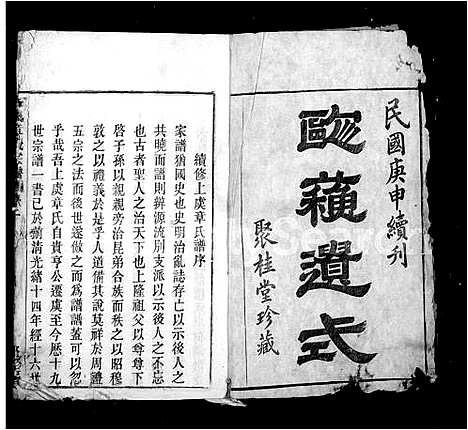 民國庚申續刊
歐蘓遺式
聚桂堂珍藏
續修上虞章氏譜序
家譜猶國史也史明治亂誌存亡以示後人之
共曉而譜則辨源流别支派以示後人之不忘
也古者聖人之治天下也上隆祖父以尊尊下
啓子孫以親親旁治昆弟合族而秩之以昭穆
敦之以禮義於是乎人道備其說莫祥於周禮
五宗之法而後世遂倣之而為譜譜蓋可以忽
乎哉吾上虞章氏自貴亨公遷虞至今厯十九
世宗譜一書已於前清光緒十四年經十六世